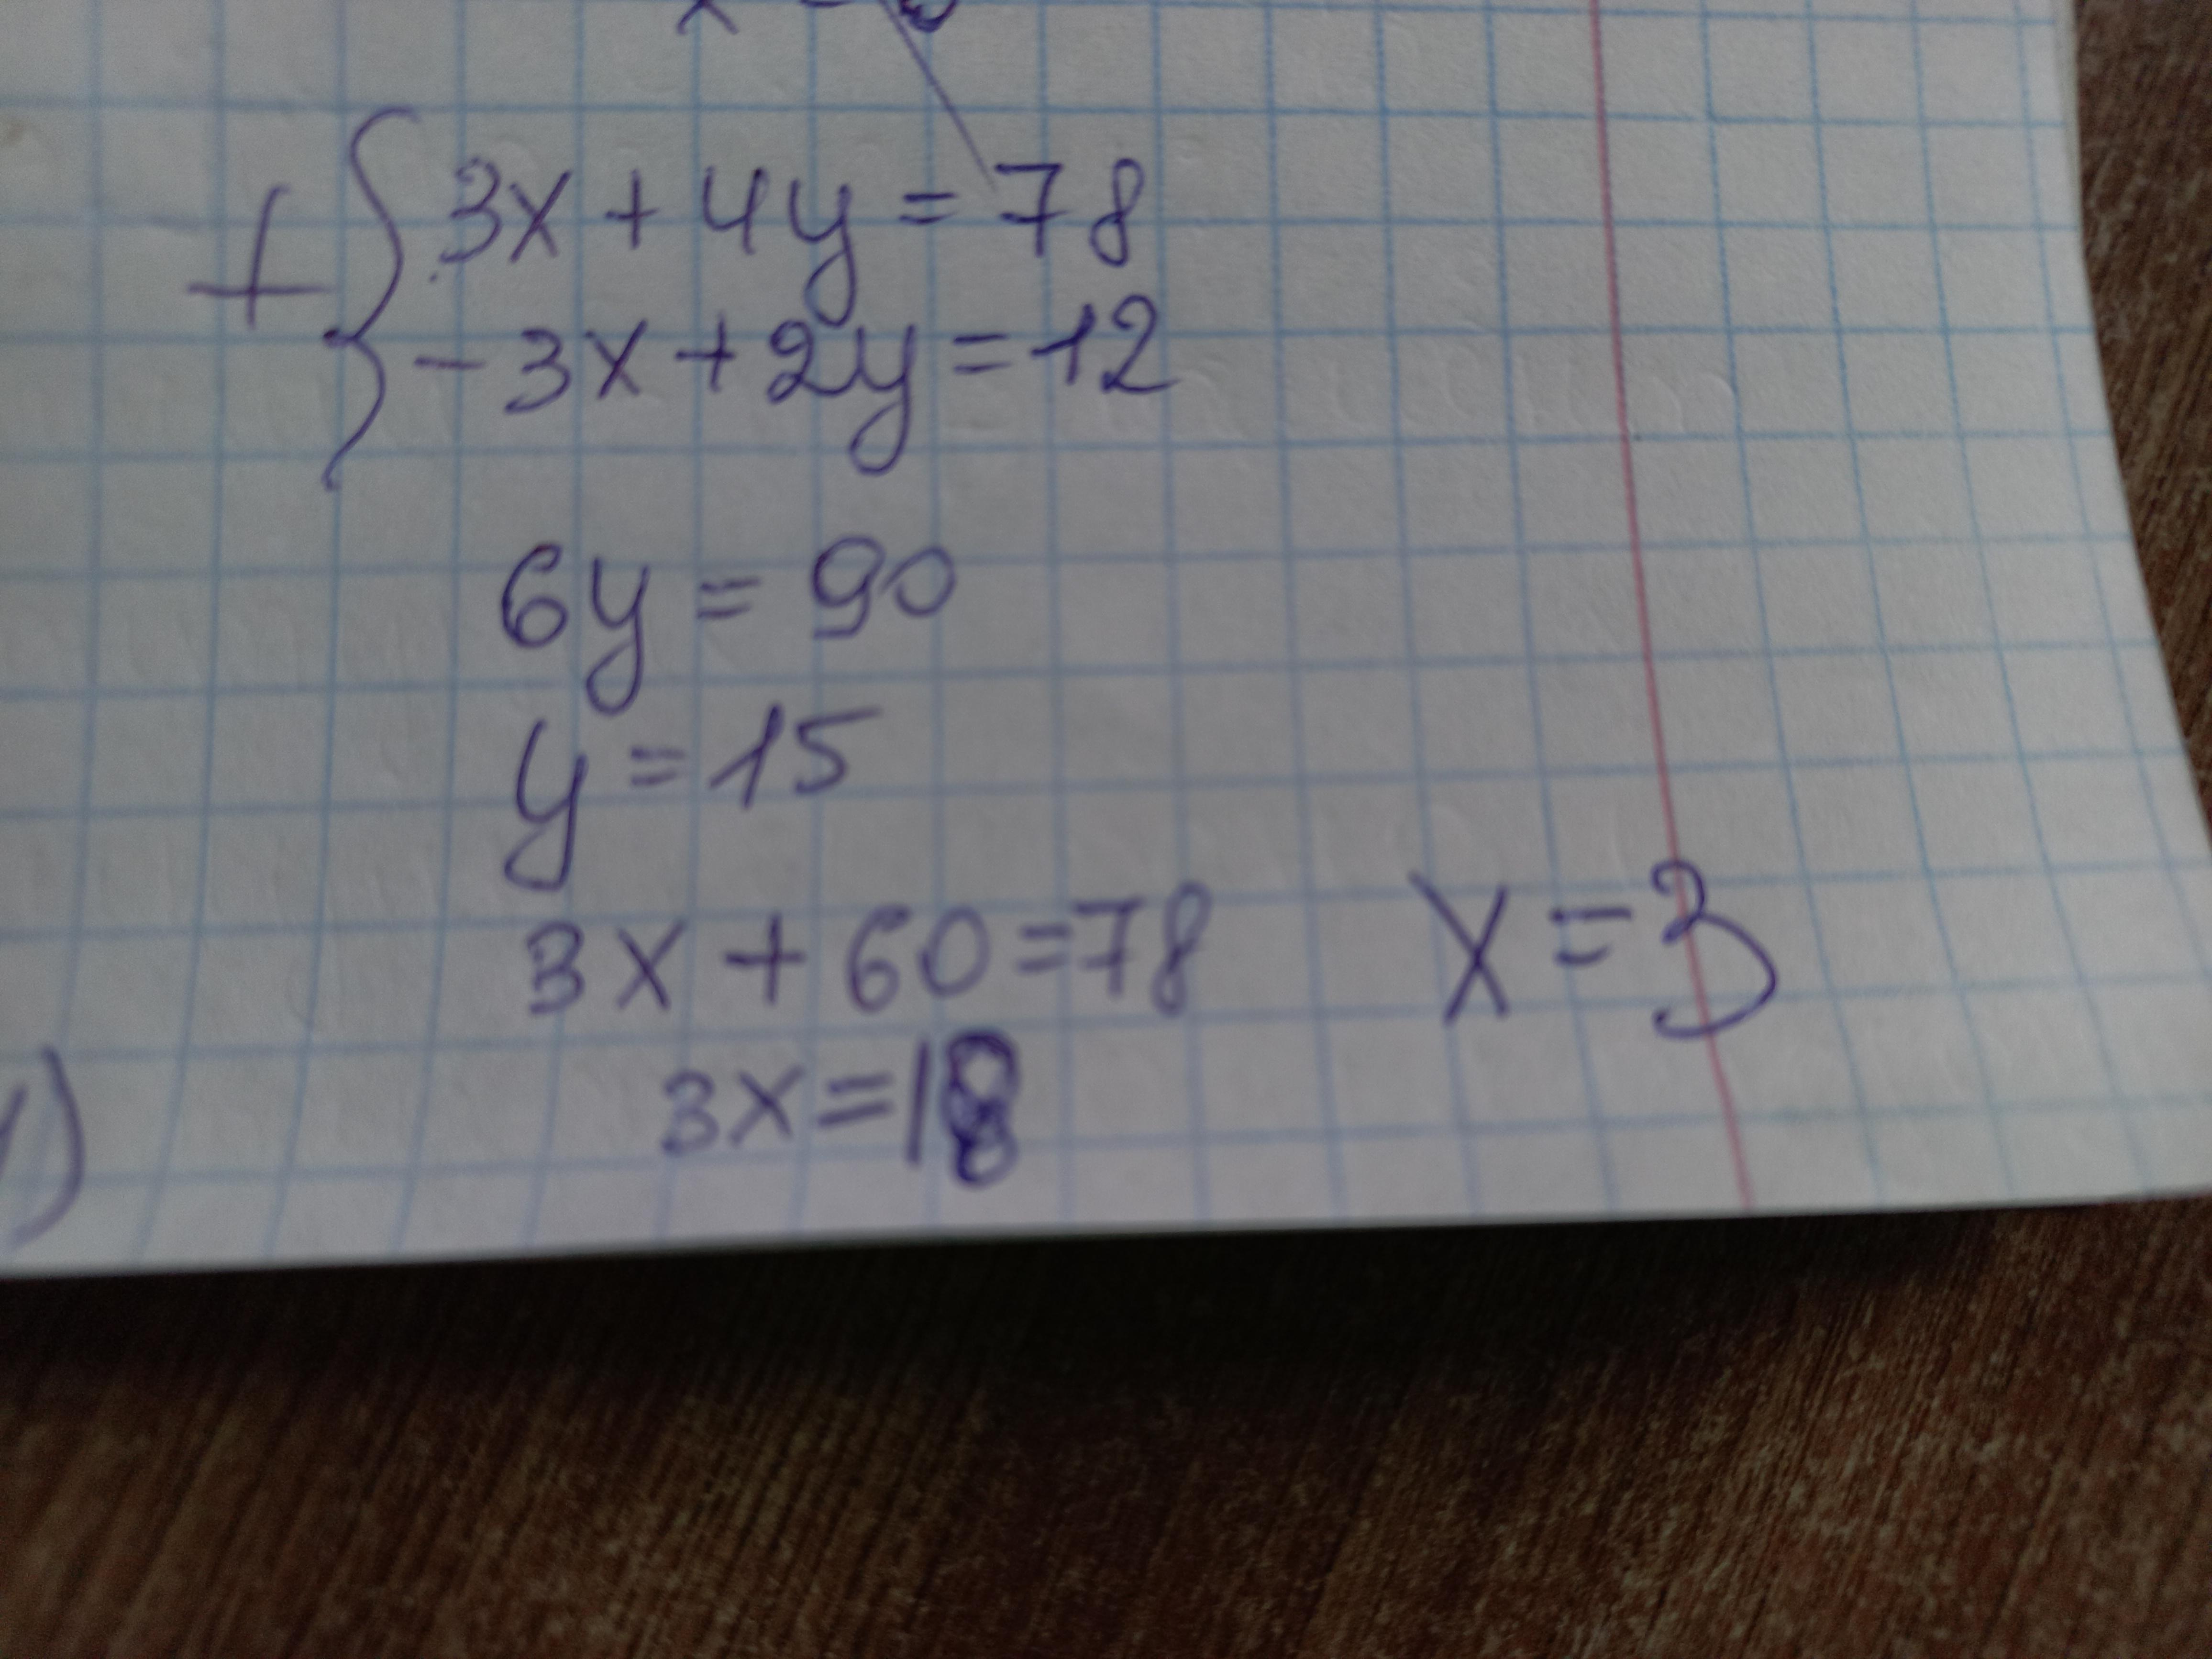 + { 3x + 4y = 78
- 3x + 2y = 12
6y = 90
y = 15
3x + 60 = 78 x = 3
3x = 18
)